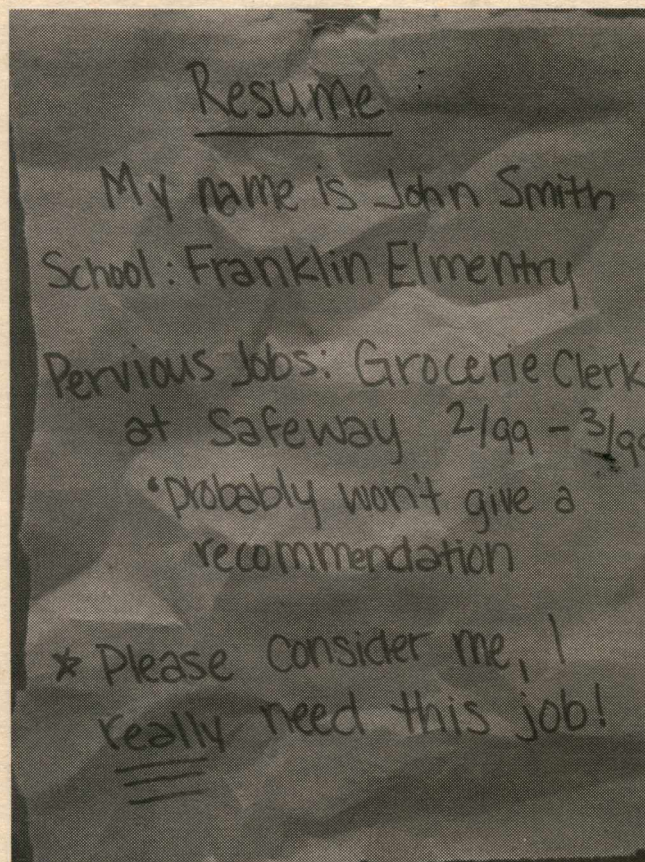 Resume
My name is John Smith
School: Franklin Elmentry
Pervious Jobs: Grocerie Clerk
at Safeway 2/99 - 3/99
•probably won't give a
recommendation
* Please consider me, I
really need this job!